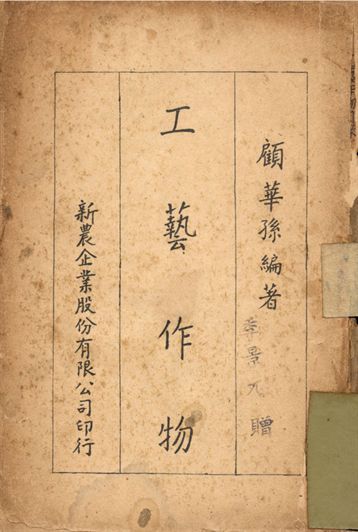 顧華孫編著
季景九贈
工藝作物
新農企業股份有限公司印行